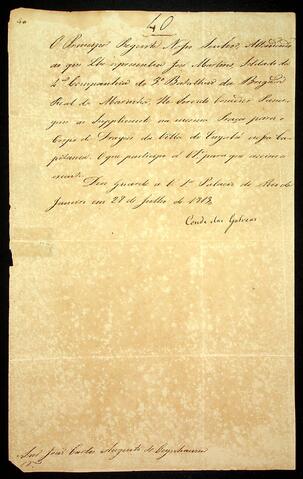 40
O Principe Regente Nosso Senhor, Attendendo
ao que Lhe representou José Martins, Soldado da
4.ª Companhia do 3.º Batalhão da Brigada
Real da Marinha, He Servido
que o Supplicante na mesma Praça para o
Corpo de Dragoes da Villa de Cuyabá
O que participo a V. S.ª para que assim o
execute.
Deos Guarde a V. S.ª Palacio do Rio de
Janeiro em 28 de Julho de 1813.
Conde das Galveas
Snr. João Carlos Augusto de Oeynhausen